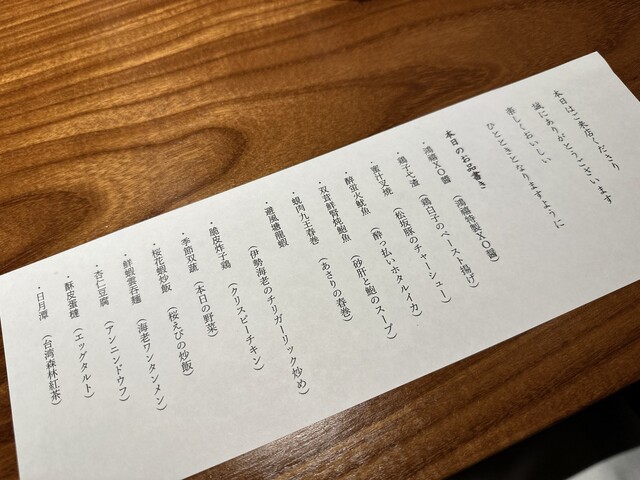 本日はご来店くださり
誠にありがとうございます
楽しくおいしい
ひとときとなりますように
本日のお品書き
・鴻禧XO醬 (鴻禧特製XO醤)
・鶏子戈渣 (鶏白子のペースト揚げ)
・蜜汁叉焼 (松坂豚のチャーシュー)
・酔蛍火魷魚 (酔っ払いホタルイカ)
・双茸鮮腎炖鮑魚 (砂肝と鮑のスープ)
・蜆肉九王春巻 (あさりの春巻)
・避風塘龍蝦 (伊勢海老のチリガーリック炒め)
・脆皮炸子鶏 (クリスピーチキン)
・季節双蔬 (本日の野菜)
・桜花蝦炒飯 (桜えびの炒飯)
・鮮蝦雲呑麺 (海老ワンタンメン)
・杏仁豆腐 (アンニンドウフ)
・酥皮蛋撻 (エッグタルト)
・日月潭 (台湾森林紅茶)